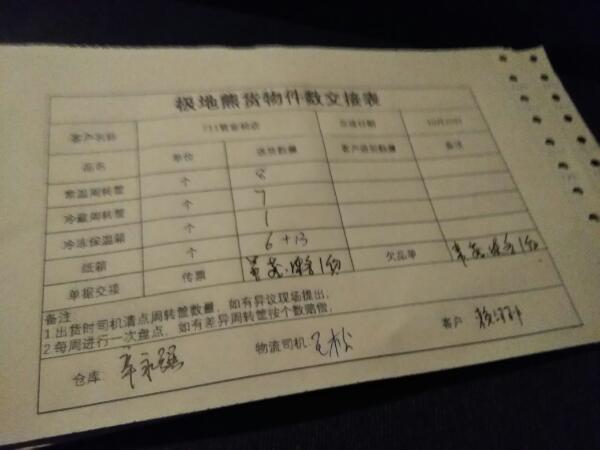 极地熊货物件数交接表
客户名称 711 交接日期 10月20日
品名 单位 送货数量 客户退回数量 备注
常温周转筐 个 8
冷藏周转筐 个 7
冷冻保温箱 个 1
纸箱 个 6+13
单据交接 传票 1份 欠品单 1份
备注:
1.出货时司机清点周转筐数量,如有异议现场提出,
2.每周进行一次盘点,如有差异周转筐按个数赔偿,
仓库: 物流司机: 客户: